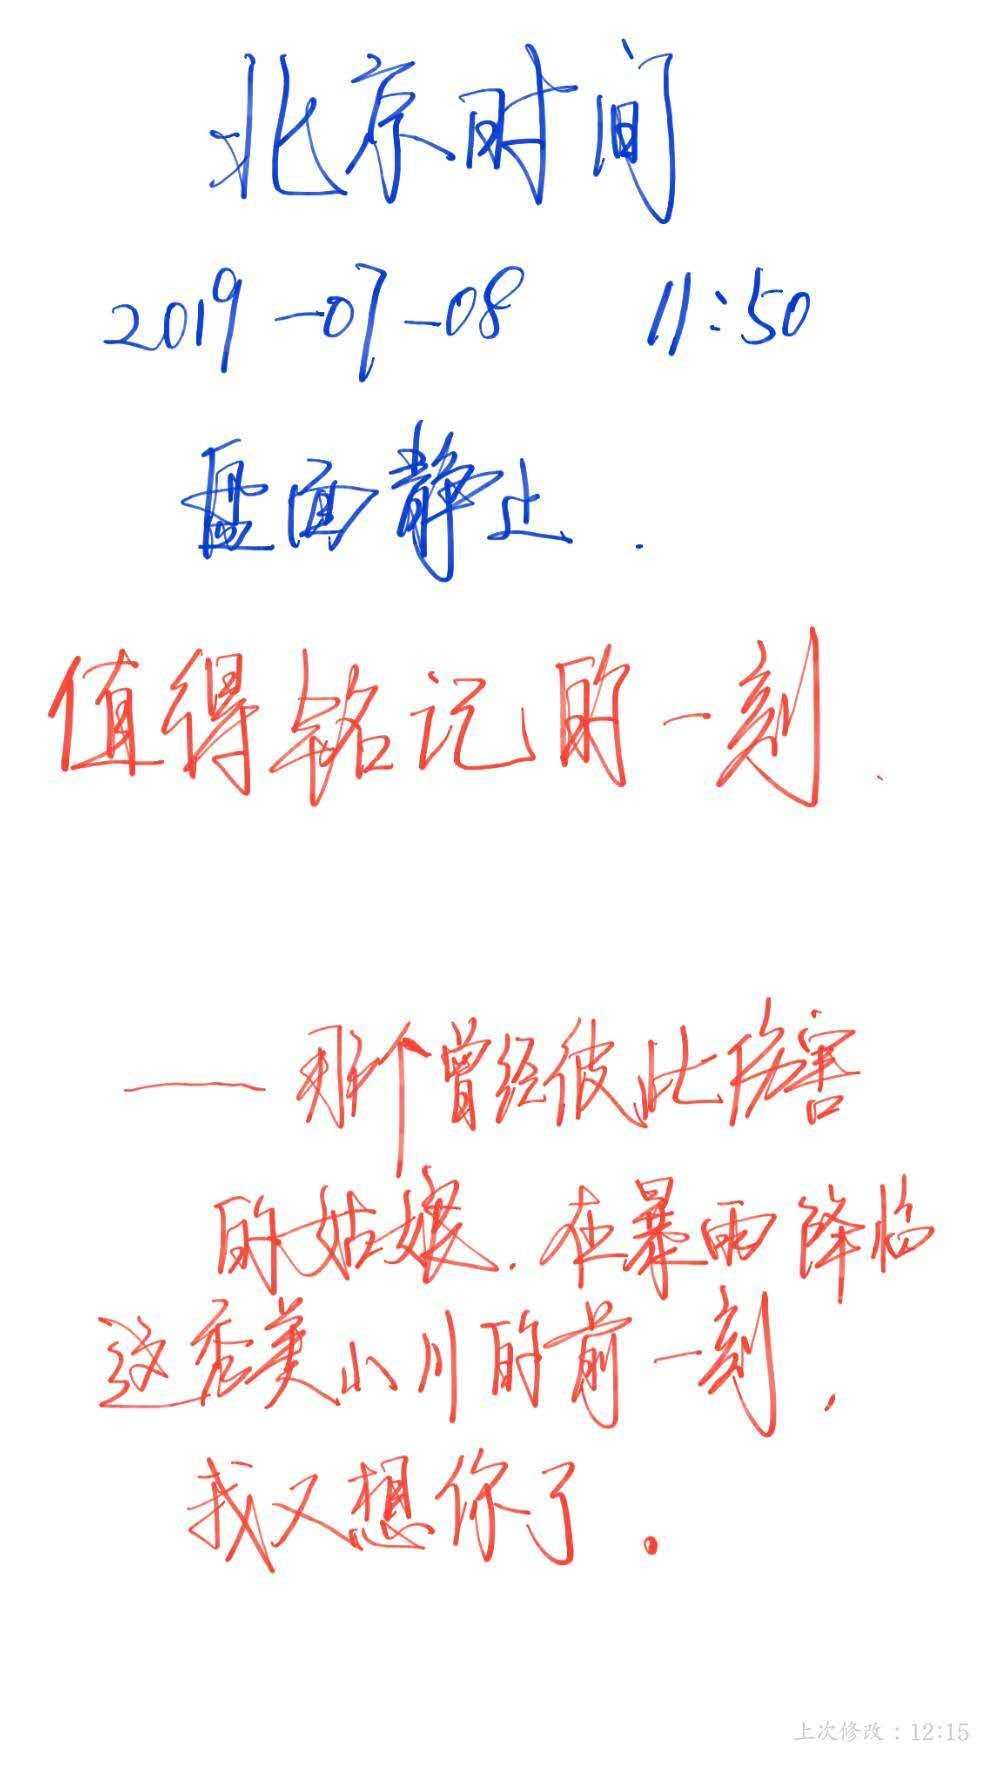 北京时间
2019-07-08 11:50
画面静止.
值得铭记的一刻.
——那个曾经彼此伤害
的姑娘.在暴雨降临
这秀美小川的前一刻,
我又想你了.
上次修改：12:15